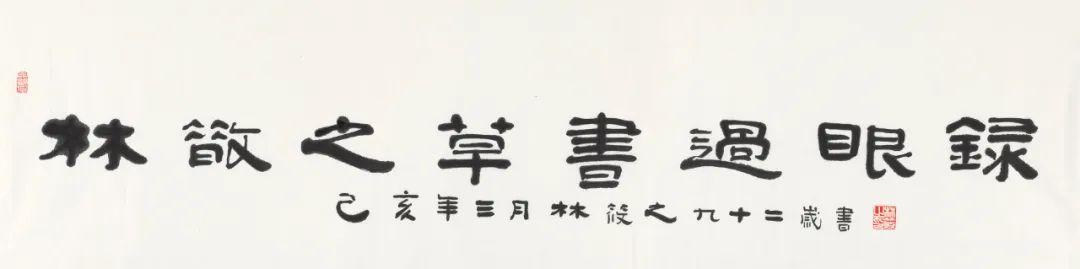 林散之草書過眼録
己亥年三月林筱之九十二歲書